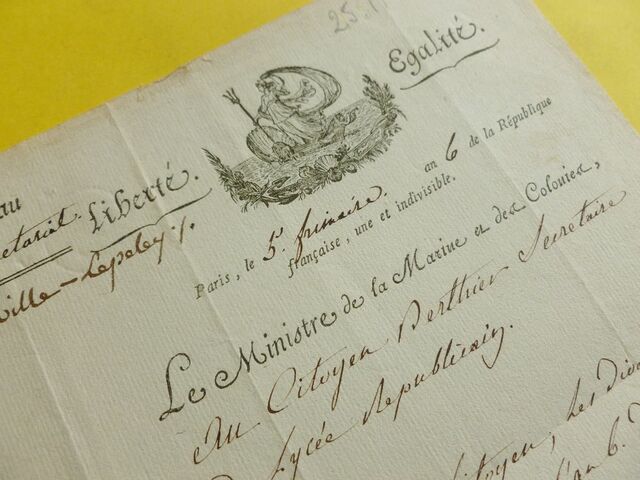 25.
Egalité.
Liberté.
au
etariat.
ville-Lepeley
Paris, le 5. frimaire. an 6 de la République
française, une et indivisible.
Le Ministre de la Marine et des Colonies,
Au Citoyen Berthier Secretaire
Lycée Republicain.
Citoyen, les